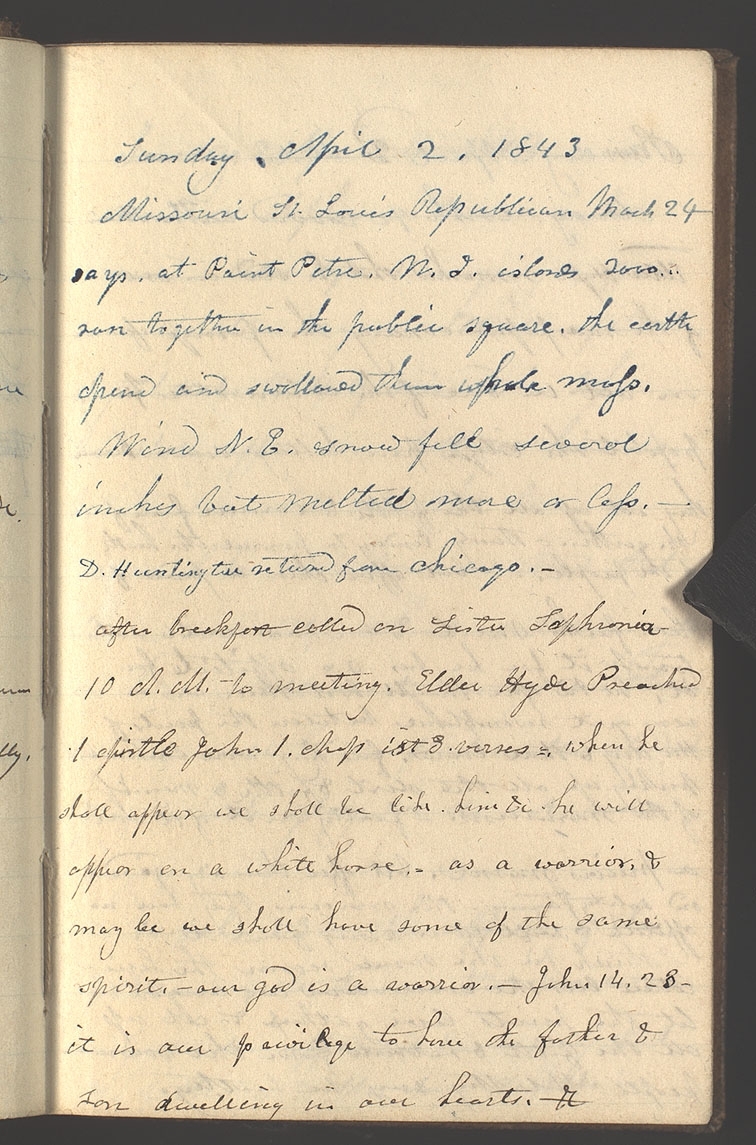 Sunday. April 2. 1843
Missouri St. Louis Republican Mach 24
says. at Point Petre. W. I. islands 2000..
ran together in the public square. the earth
opend and swallowed them whole mass.
Wind N. E. snow fell several
inches but melted more or less. —
D. Huntington returnd from Chicago. —
after breakfast called on Sister Sophronia
10 A. M. to meeting. Elder Hyde Preached
1 epistle John 1. chap 1st 3. verses =. when he
shall appear we shall be like him &c he will
appear on a white horse. = as a warrior. &
may be we shall have some of the same
spirit. — our god is a warrior. — John 14. 23 —
it is our privilege to have the father &
son dwelling in our hearts. —